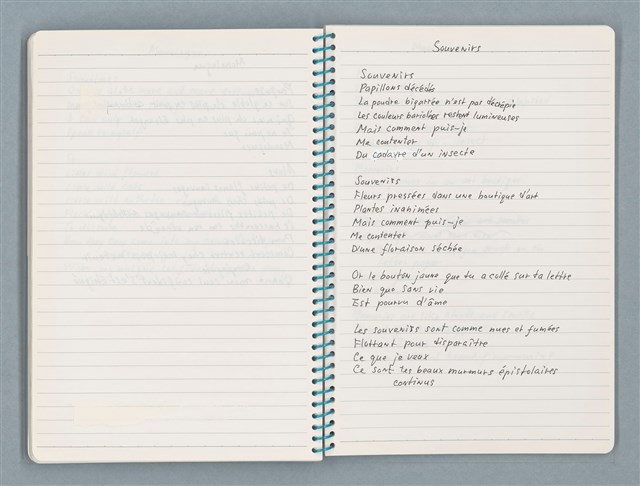 Souvenirs
Souvenirs
Papillons décédés
La poudre bigarrée n'est pas décrépie
Les couleurs bariolées restent lumineuses
Mais comment puis-je
Me contenter
Du cadavre d'un insecte
Souvenirs
Fleurs pressées dans une boutique d'art
Plantes inanimées
Mais comment puis-je
Me contenter
D'une floraison séchée
Or le bouton jaune que tu a collé sur ta lettre
Bien que sans vie
Est pourvu d'âme
Les souvenirs sont comme nues et fumées
Flottant pour disparaître
Ce que je veux
Ce sont tes beaux murmurs épistolaires
continus